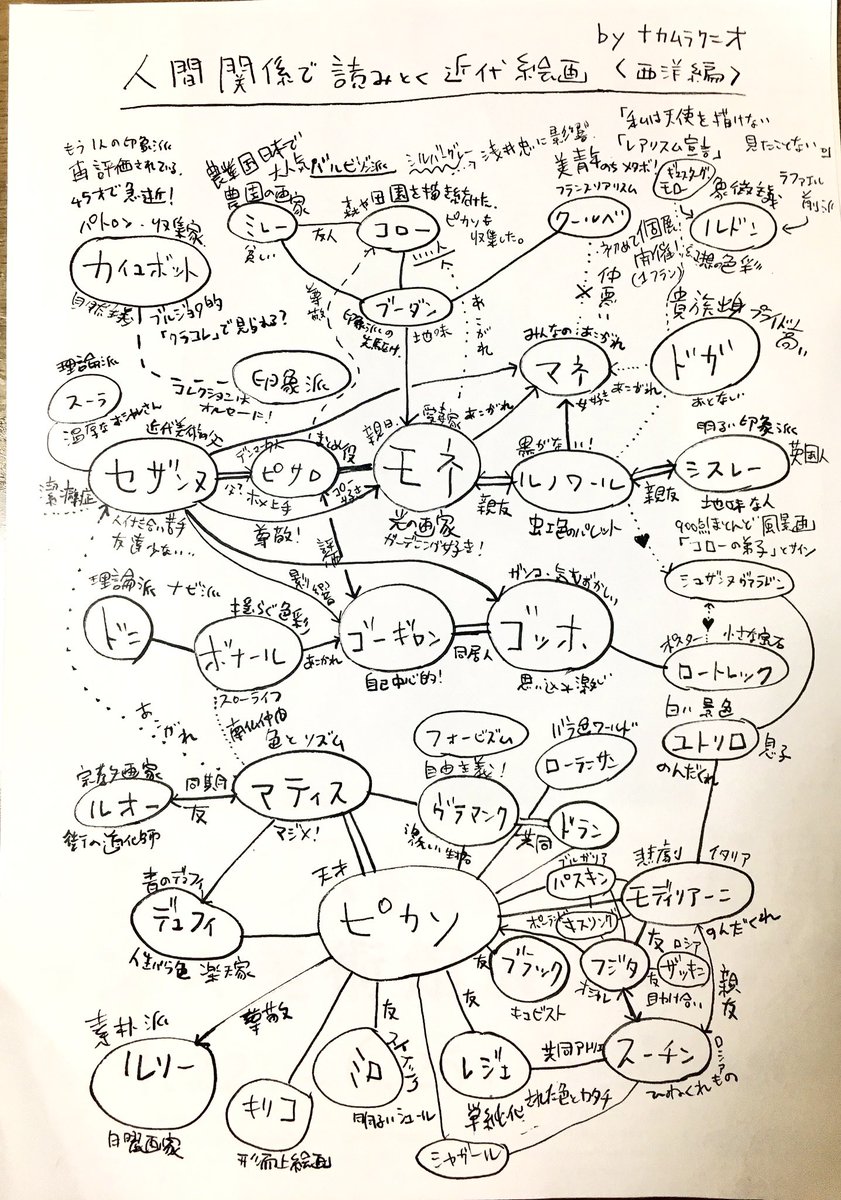 by ナカムラクニオ
人間関係で読みとく近代絵画〈西洋編〉
もう1人の印象派
再評価されている
45才で急逝！
パトロン・収集家
カイユボット
自然主義
ブルジョワ的
「クラコレ」で見られる？
農業国日本で
大人気
農園の画家
バルビゾン派
シルバーグレー
浅井忠に影響
ミレー
貧しい
友人
森や田園を描き続けた
コロー
ピカソも
収集した。
美青年のちメタボ！
フランスリアリズム
クールベ
「私は天使を描けない
見たことない」
「レアリスム宣言」
初めて個展
開催！
(1フラン)
ギュスターヴ
モロー
象徴主義
ラファエル
前派
ルドン
幻想の色彩
仲悪い
尊敬
ブーダン
地味
あこがれ
みんなのあこがれ
マネ
女好き
あこがれ
貴族出身
プライド高い
ドガ
理論派
スーラ
温厚なオシャレさん
コレクションは
オルセーに！
印象派
近代美術の父
セザンヌ
潔癖症
人付き合い苦手
友達少ない…
ピサロ
まとめ役
ホメ上手
尊敬！
親日
愛妻家
モネ
光の画家
ガーデニング好き！
あこがれ
親友
黒がない！
ルノワール
虹色のパレット
親友
明るい印象派
シスレー
英国人
地味な人
900点ほとんど風景画
「コローの弟子」とサイン
評価
影響
理論派
ナビ派
ドニ
揺らぐ色彩
ボナール
スローライフ
あこがれ
ゴーギャン
自己中心的！
同居人
ガンコ・気むずかしい
ゴッホ
思い込み激しい
シュザンヌヴァラドン
ポスター
小さな宝石
ロートレック
白い景色
ユトリロ
息子
のんだくれ
あこがれ
南仏仲間
色とリズム
宗教画家
ルオー
街の道化師
同期
友
マティス
マジメ！
フォービズム
自由主義！
ヴラマンク
激しい生活
バラ色ワールド
ローランサン
共同
ドラン
青のデュフィ
デュフィ
人生バラ色
楽天家
天才
ピカソ
ブルガリア
パスキン
ポーランド
キスリング
悲劇
イタリア
モディリアーニ
のんだくれ
友
ブラック
キュビスト
フジタ
オシャレ
友
ロシア
ザッキン
友
助け合い
親友
素朴派
ルソー
日曜画家
尊敬
キリコ
形而上絵画
友
ミロ
明るいシュール
友
レジェ
単純化された色とカタチ
共同アトリエ
スーチン
ロシア
ひねくれもの
シャガール